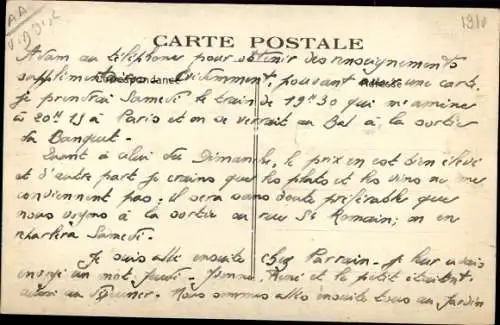 AA
1910
CARTE POSTALE
Correspondance
Adresse
au téléphone pour obtenir des renseignements
supplémentaires. Evidemment, pouvant une carte.
je prendrai Samedi le train de 19h30 qui m'amène
à 20h15 à Paris et on se verrait au Bal à la sortie
du Banquet.
Quant à celui du Dimanche, le prix en est bien élevé
et d'autre part je crains que les plats et les vins ne me
conviennent pas; il sera sans doute préférable que
nous voyons à la sortie rue St Romain; on en
parlera Samedi.
Je suis allé ensuite chez Parrain. Je leur avais
envoyé un mot Jeudi. et le petit étaient
au déjeuner. Nous sommes allés ensuite tous au Jardin